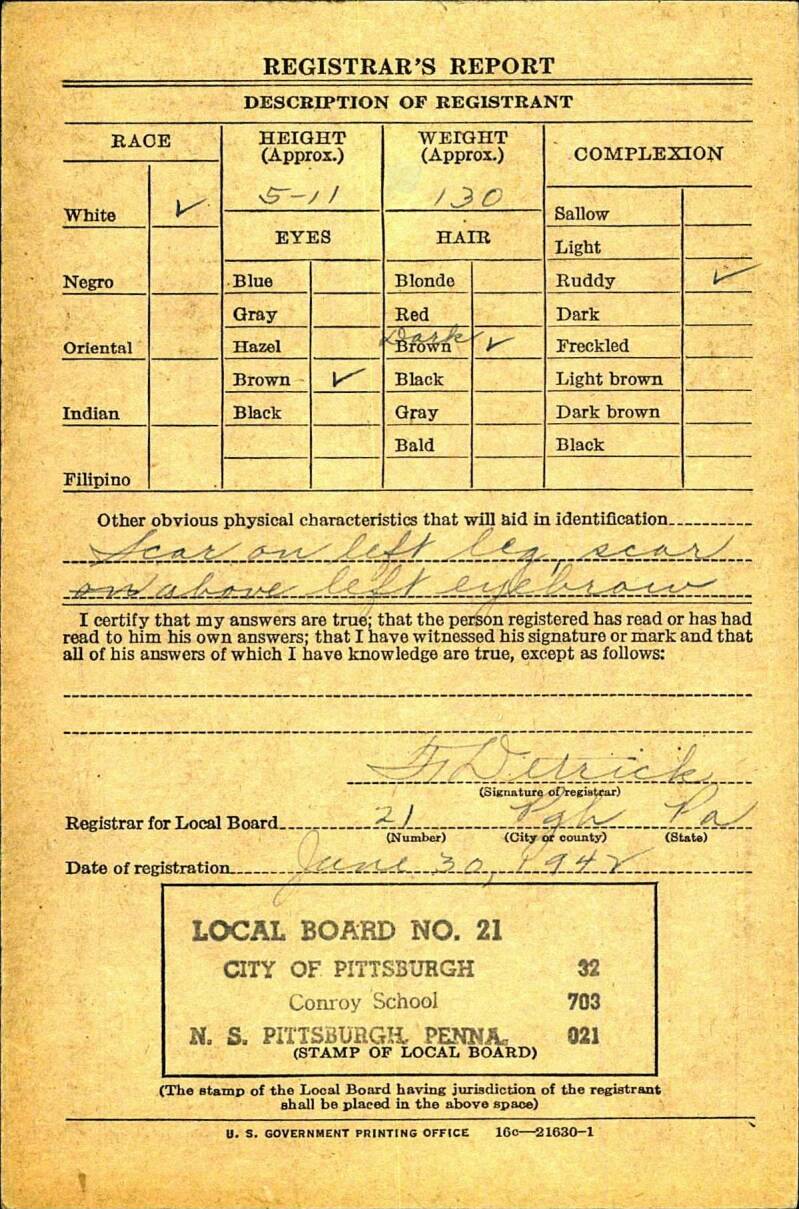 REGISTRAR'S REPORT
DESCRIPTION OF REGISTRANT
RACE
HEIGHT
(Approx.)
WEIGHT
(Approx.)
COMPLEXION
White ✓
5-11
130
Sallow
EYES
HAIR
Light
Negro
Blue
Blonde
Ruddy ✓
Gray
Red
Dark
Oriental
Hazel
Dark
Brown ✓
Freckled
Brown ✓
Black
Light brown
Indian
Black
Gray
Dark brown
Bald
Black
Filipino
Other obvious physical characteristics that will aid in identification
Scar on left leg, scar
on above left eyebrow
I certify that my answers are true; that the person registered has read or has had
read to him his own answers; that I have witnessed his signature or mark and that
all of his answers of which I have knowledge are true, except as follows:
F. Derrick
(Signature of registrar)
Registrar for Local Board 21 Pgh Pa
(Number) (City or county) (State)
Date of registration June 30, 1942
LOCAL BOARD NO. 21
CITY OF PITTSBURGH 32
Conroy School 703
N. S. PITTSBURGH, PENNA. 021
(STAMP OF LOCAL BOARD)
(The stamp of the Local Board having jurisdiction of the registrant
shall be placed in the above space)
U. S. GOVERNMENT PRINTING OFFICE 16c—21630-1